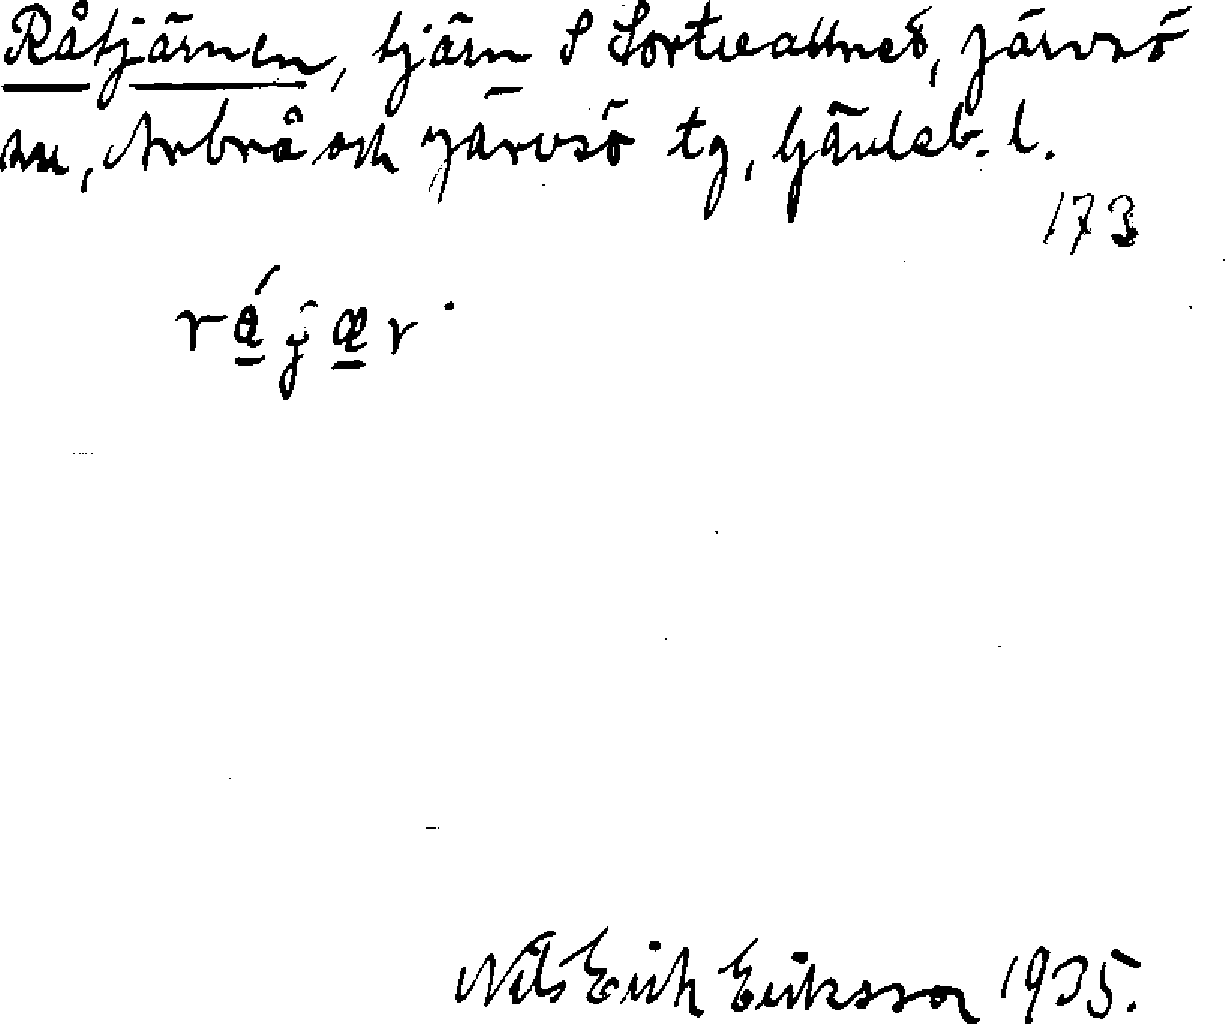 Råtjärnen, tjärn S Sortvallned, Järvsö
sn, Arbrå och Järvsö tg, Gävleb. l.
173
Nils Erik Eriksson 1935.